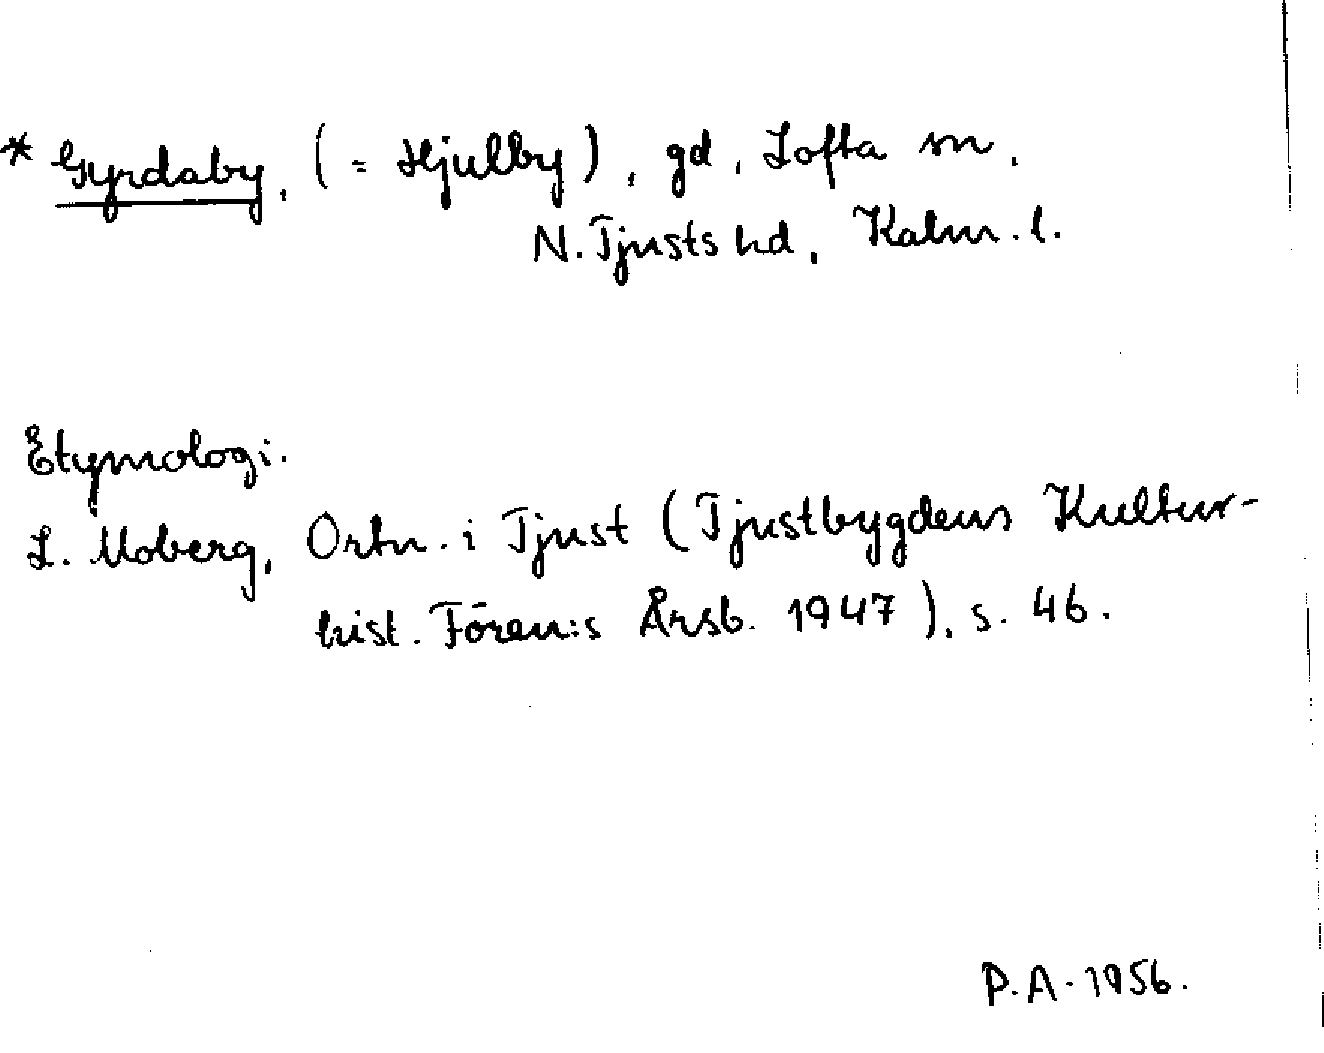 * Gyrdaby, (= Hjulby), gd, Lofta sn,
N. Tjusts hd, Kalm. l.
Etymologi.
L. Moberg, Ortn. i Tjust (Tjustbygdens Kultur-
hist. Fören:s Årsb. 1947), s. 46.
P.A. 1956.